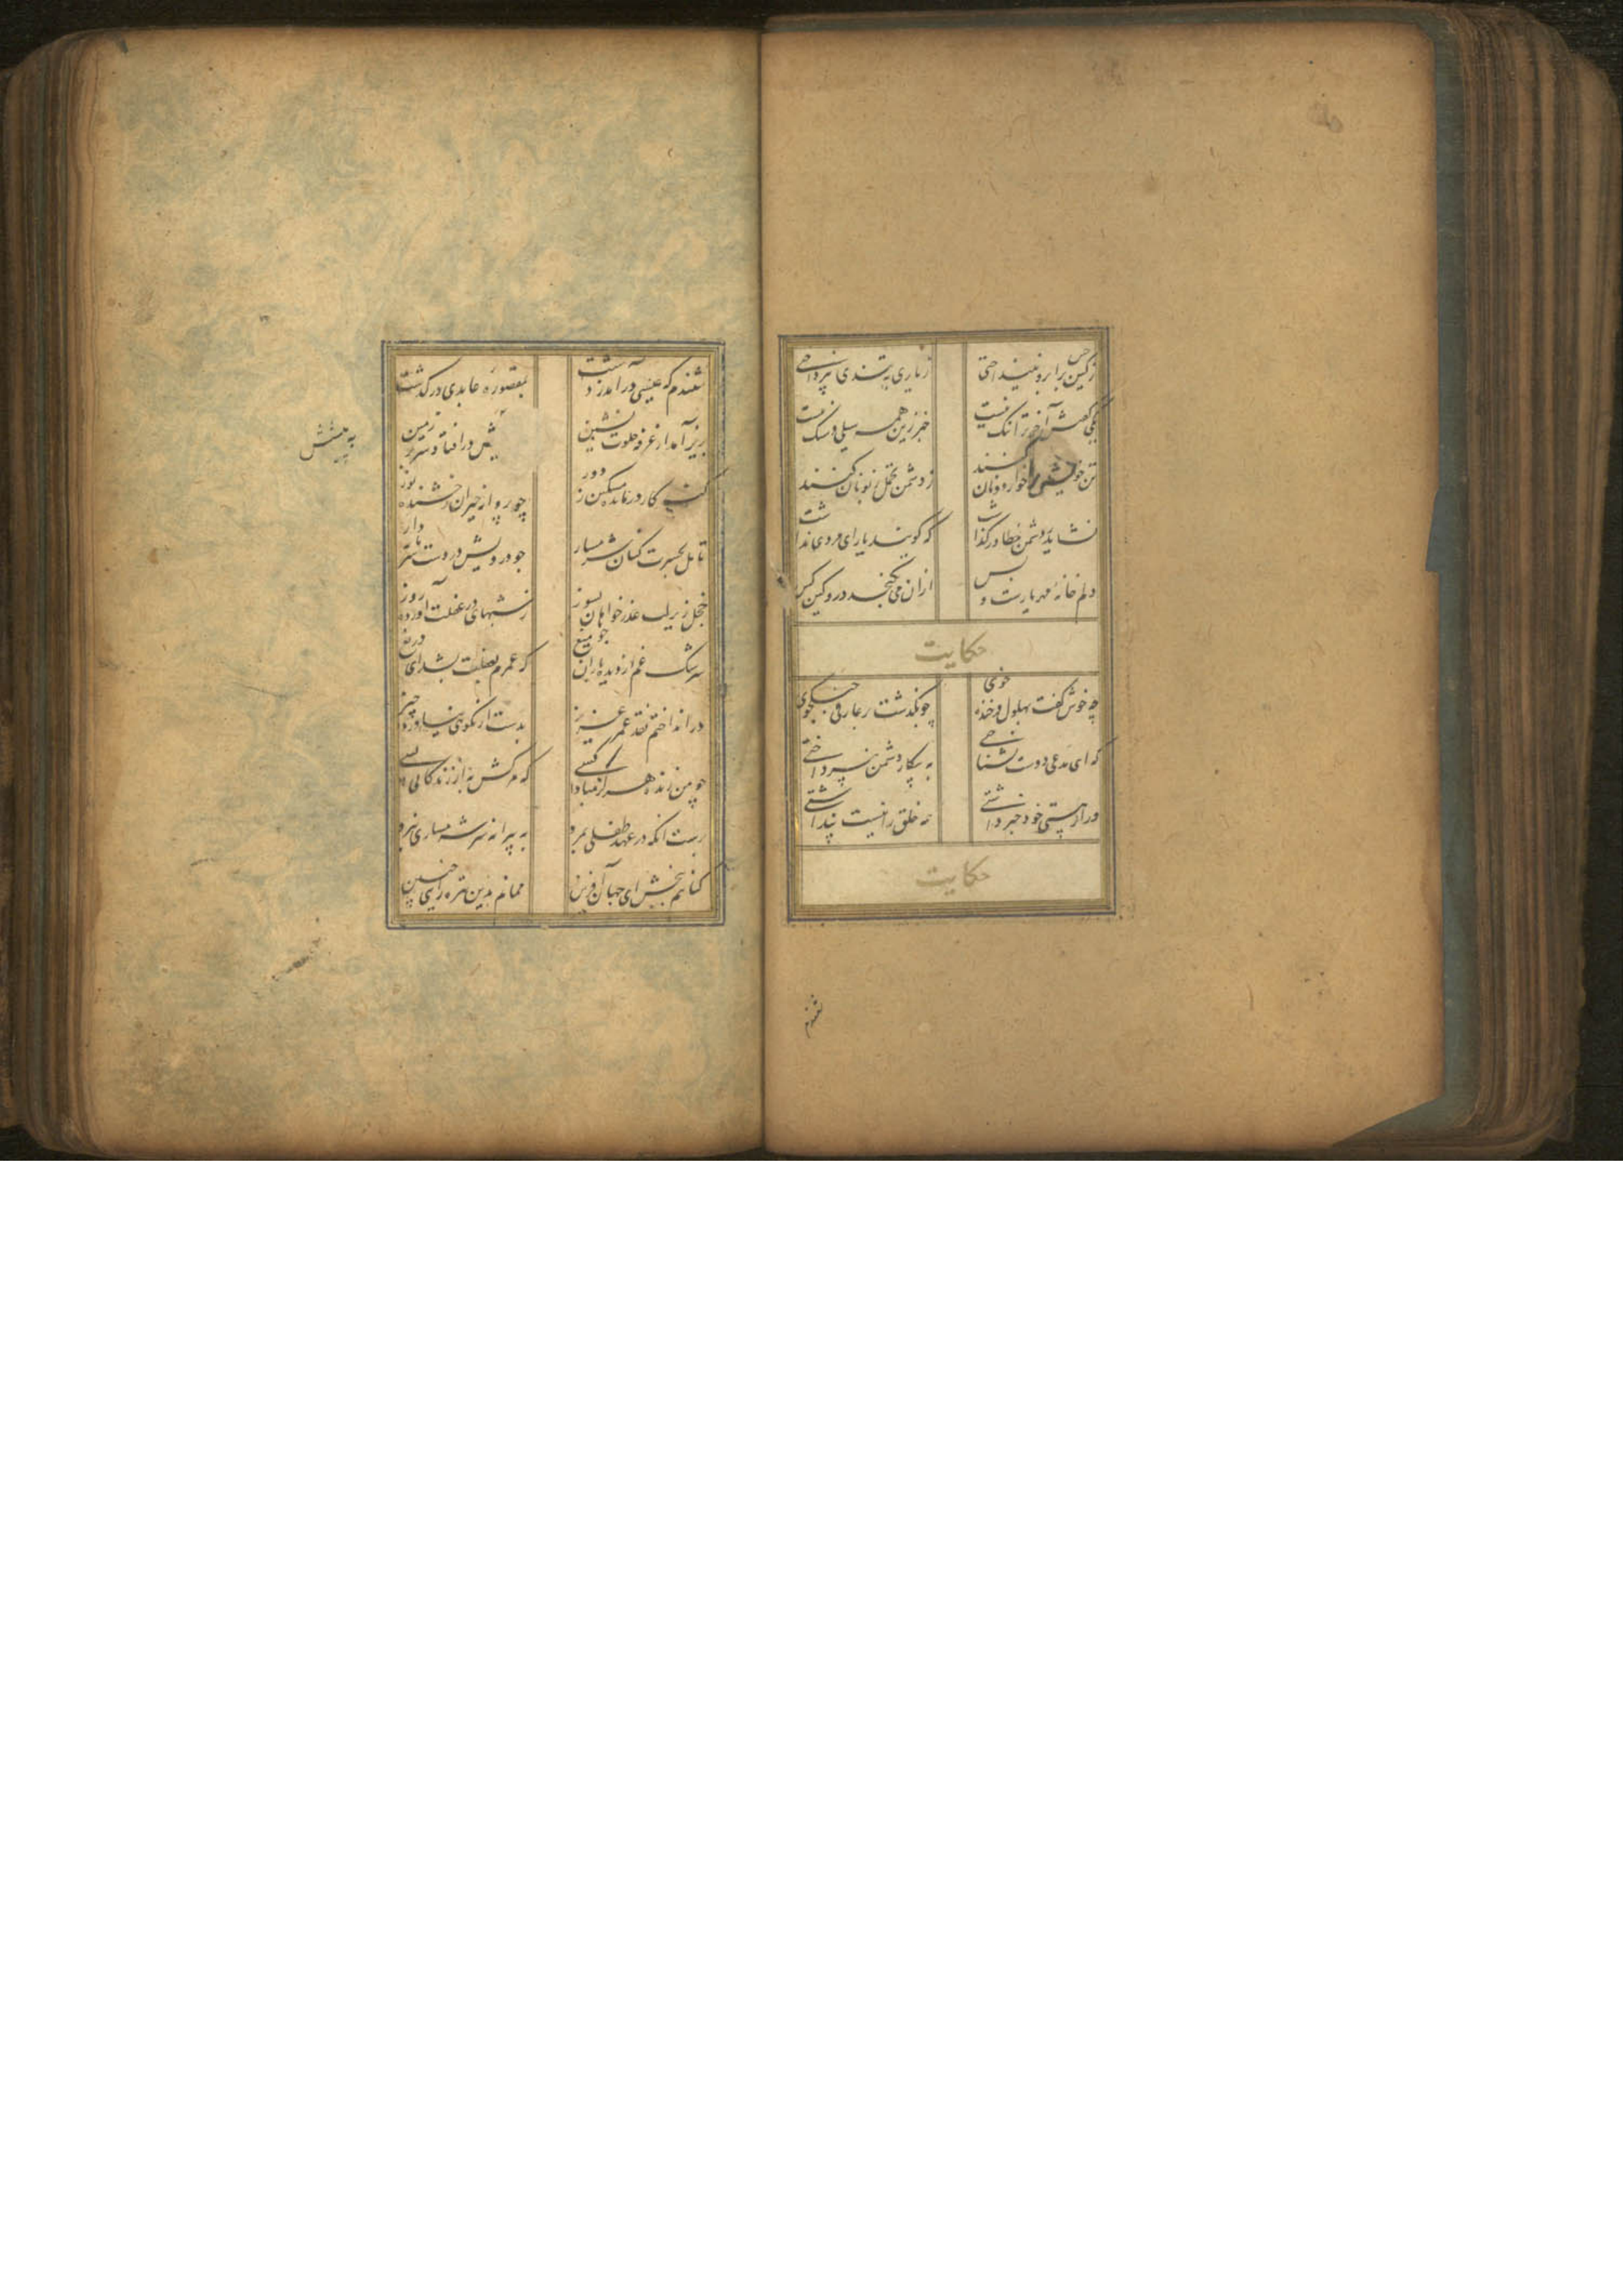 زکین برابرو نینداختی
زیاری به تندی نپرداختی
یکی گفتش آخر ترا ننگ نیست
خبر زین همه سیلی و سنگ نیست
تن خویشتن را خواره دونان کنند
ز دشمن تحمل زبونان کنند
نشاید ز دشمن خطا درگذاشت
که گویند یارای مردی نداشت
دلم خانه مهر یارست و بس
ازان می نگنجد درو کین کس
حکایت
چه خوش گفت بهلول فرخنده خوی
چو بگذشت بر عارفی جنگجوی
که ای مدعی دوست بشناختی
به پیکار دشمن نپرداختی
ور از هستی خود خبر داشتی
همه خلق را نیست پنداشتی
حکایت
شنیدم
شنیدم که عیسی درآمد ز دشت
بمقصوره عابدی درگذشت
بزیر آمد از غرفه خلوت نشین
پیش درافتاد سر بر زمین
گنه کار درمانده مسکین ز دور
چو پروانه حیران درخشنده نور
تامل بحسرت کنان شرمسار
چو درویش در دست سرمایه دار
خجل زیر لب عذر خواهان بسوز
ز شبهای در غفلت آورده روز
سرشک غم از دیده باران چو میغ
که عمرم بغفلت بشد ای دریغ
درانداختم نقد عمر عزیز
بدست از نکوی نیاورده چیز
چو من زنده هرگز مبادا کسی
که مرگش به از زندگانی بسی
برست انکه در عهد طفلی بمرد
به پیرانه سر شرمساری نبرد
گناهم ببخش ای جهان آفرین